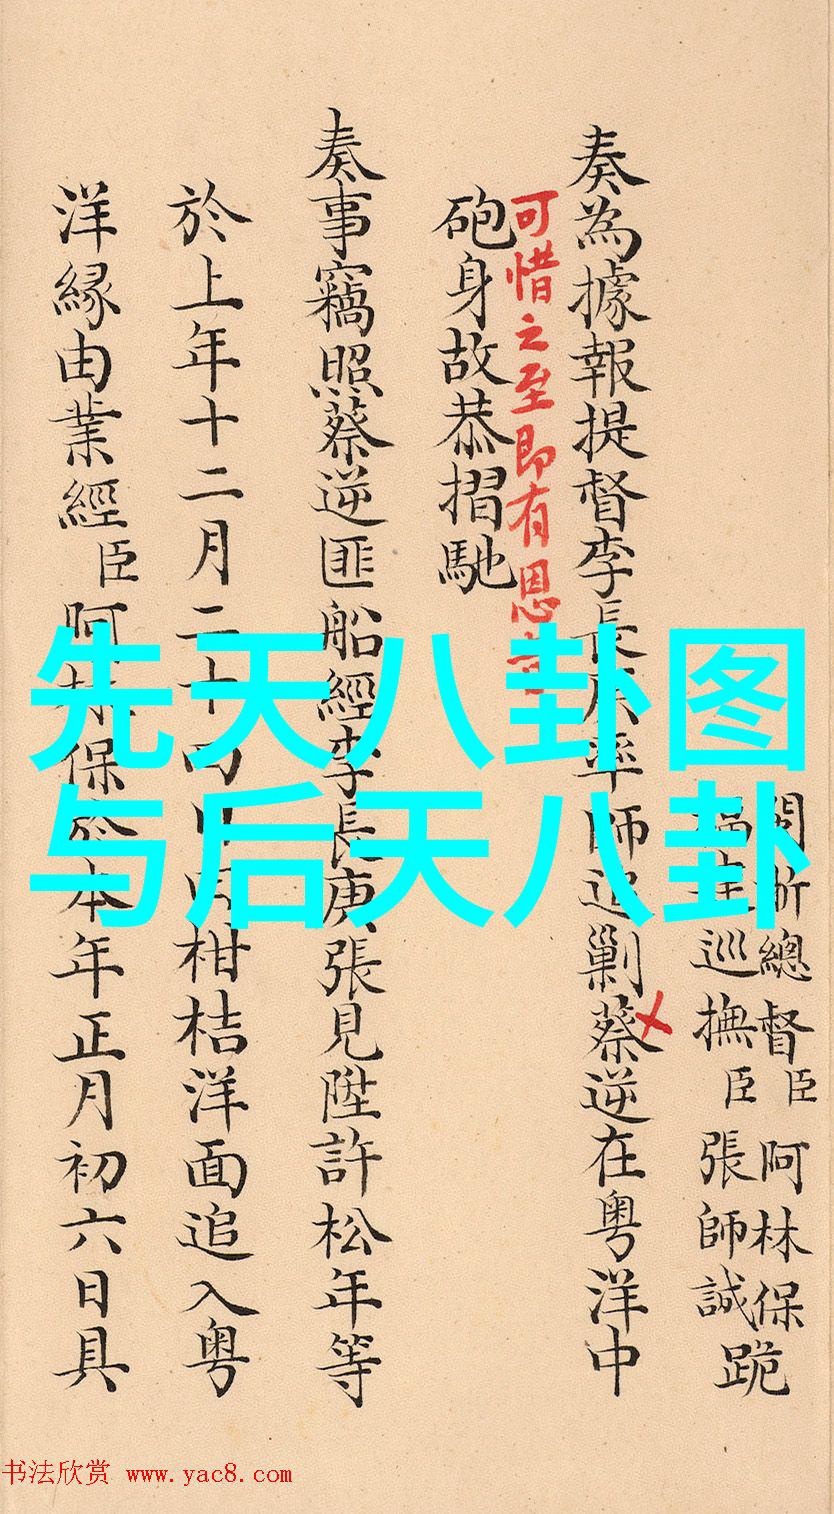 閩浙總督臣阿林保
巡撫臣張師誠跪
奏為據報提督李長庚率師追剿蔡逆在粤洋中
可惜之至即有恩
砲身故恭摺馳
奏事竊照蔡逆匪船經李長庚張見陞許松年等
於上年十二月二十四日由柑桔洋面追入粤
洋緣由業經臣阿林保於本年正月初六日具
先天八卦图
与后天八卦
书法欣赏 www.yac8.com